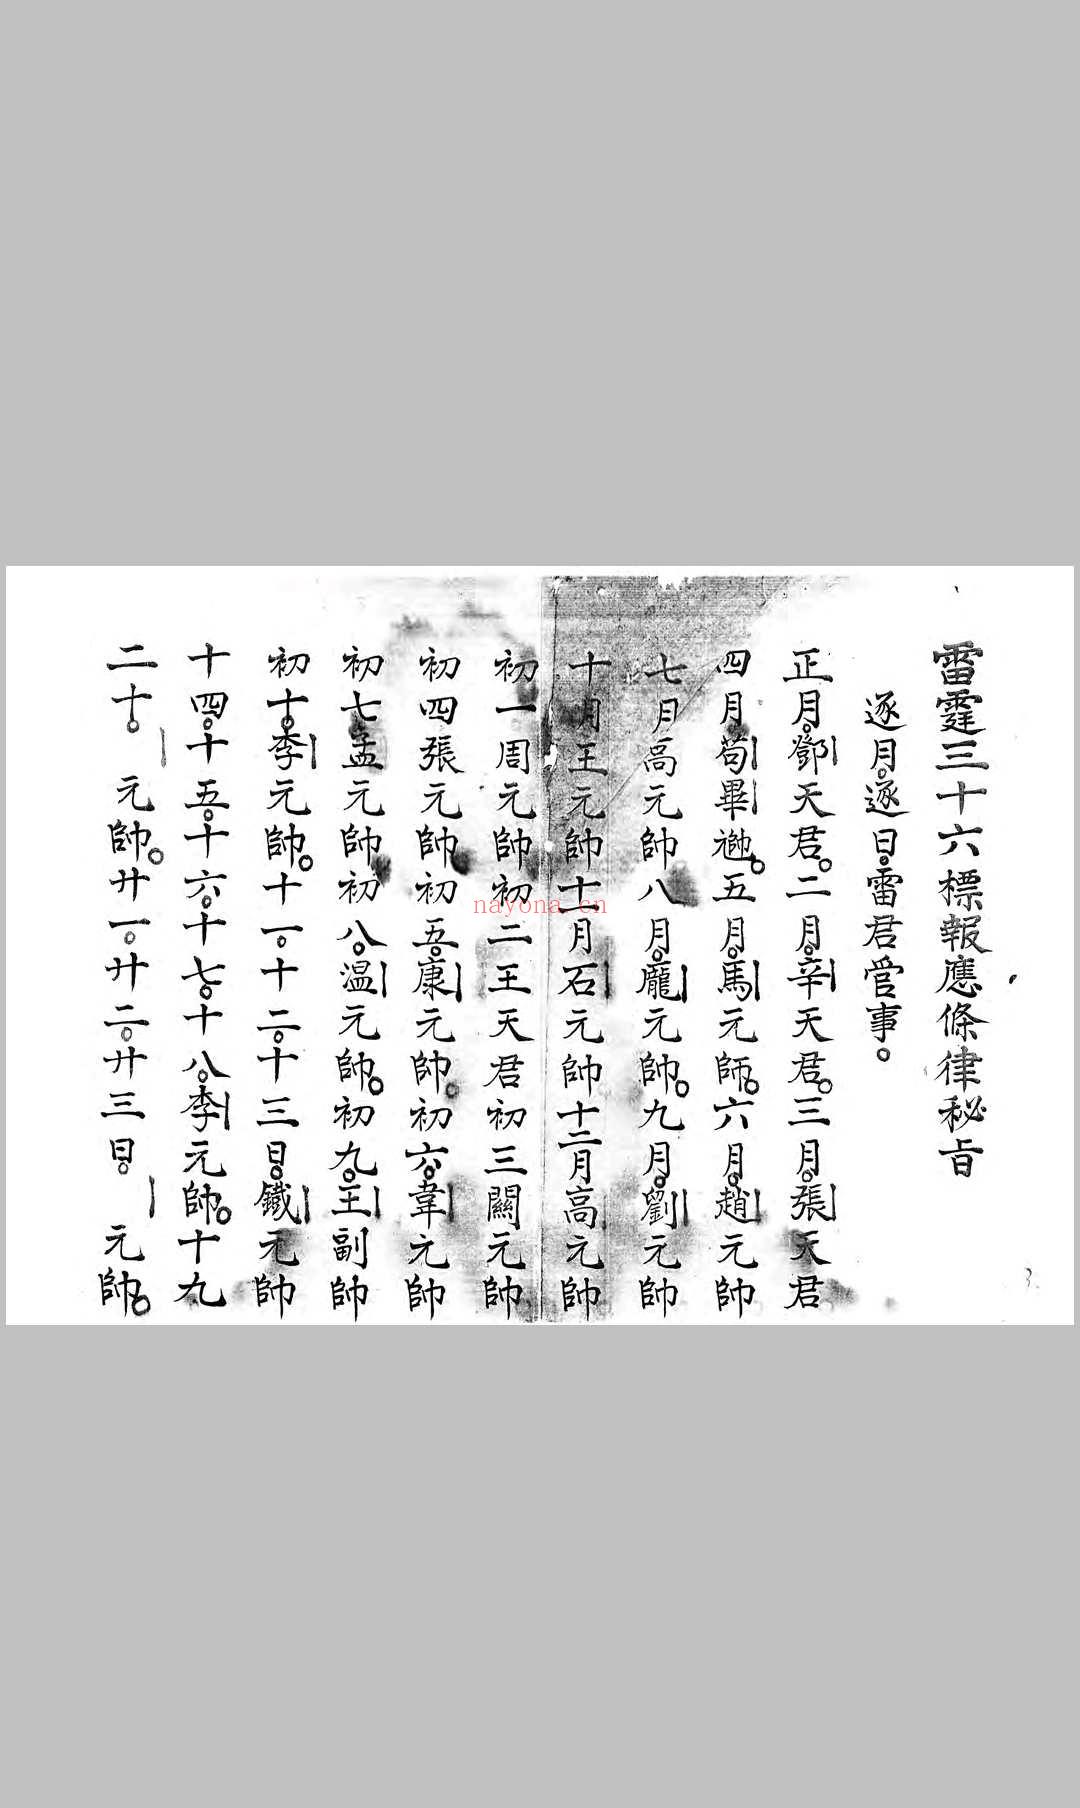 雷霆三十六標報應條律秘旨
逐月。逐日。雷君管事。
正月。鄧天君。二月。辛天君。三月。張天君
四月。苟畢。五月。馬元師。六月。趙元帥
七月高元帥八月。龐元帥。九月。劉元帥
十月王元帥十一月石元帥十二月高元帥
初一周元帥初二王天君初三關元帥
初四張元帥初五。康元帥。初六。韋元帥
初七孟元帥初八。温元帥。初九。王副帥
初十。李元帥。十一。十二。十三日。鐵元帥
十四。十五。十六。十七。十八。李元帥。十九
二十。 元帥。廿一。廿二。廿三日。 元帥。
nayona.cn
3.